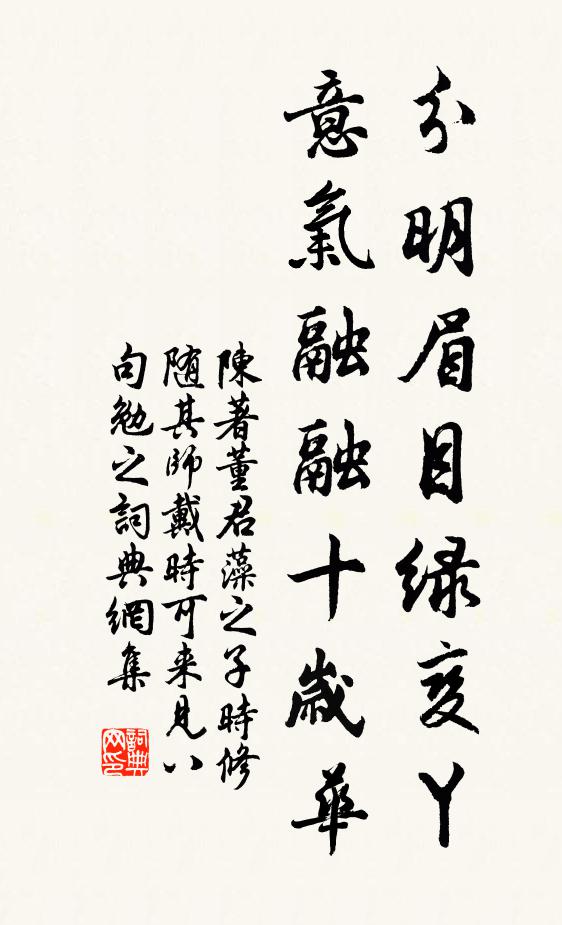 分明眉目绿变丫
意氣融融十歲華
陳著董君藻之子時修
随其師戴時可来見八
句勉之詞典網集
詞典
网印